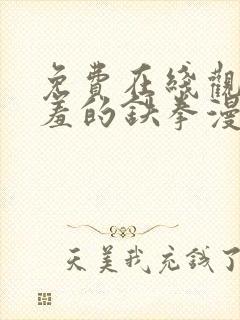 免費在綫觀
羞的鉄拳漫
天美我充錢了